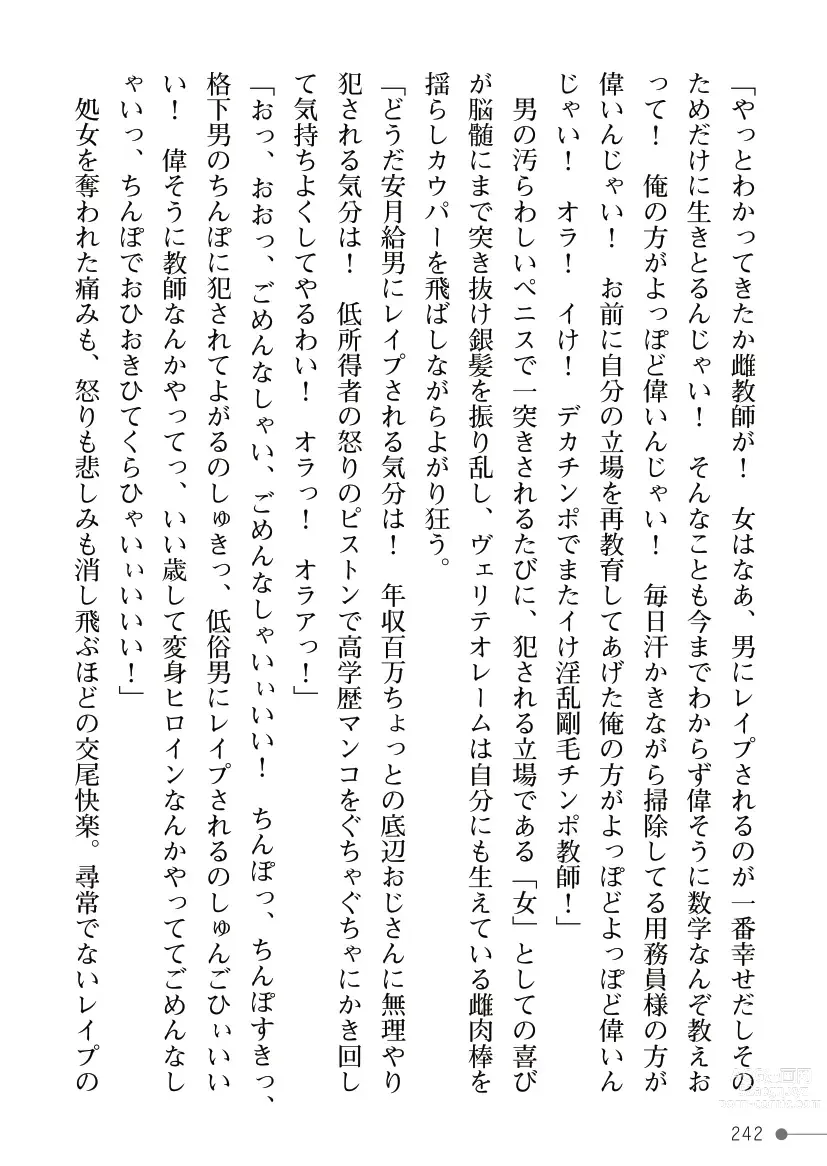 「やっとわかってきたか雌教師が！　女はなあ、男にレイプされるのが一番幸せだしその
ためだけに生きとるんじゃい！　そんなことも今までわからず偉そうに数学なんぞ教えお
って！　俺の方がよっぽど偉いんじゃい！　毎日汗かきながら掃除してる用務員様の方が
偉いんじゃい！　お前に自分の立場を再教育してあげた俺の方がよっぽどよっぽど偉いん
じゃい！　オラ！　イけ！　デカチンポでまたイけ淫乱剛毛チンポ教師！」
　男の汚らわしいペニスで一突きされるたびに、犯される立場である「女」としての喜び
が脳髄にまで突き抜け銀髪を振り乱し、ヴェリテオレームは自分にも生えている雌肉棒を
揺らしカウパーを飛ばしながらよがり狂う。
「どうだ安月給男にレイプされる気分は！　年収百万ちょっとの底辺おじさんに無理やり
犯される気分は！　低所得者の怒りのピストンで高学歴マンコをぐちゃぐちゃにかき回し
て気持ちよくしてやるわい！　オラっ！　オラアっ！」
「おっ、おおっ、ごめんなしゃい、ごめんなしゃいぃいい！　ちんぽっ、ちんぽすきっ、
格下男のちんぽに犯されてよがるのしゅきっ、低俗男にレイプされるのしゅんごひぃいい
い！　偉そうに教師なんかやってっ、いい歳して変身ヒロインなんかやっててごめんなし
ゃいっ、ちんぽでおひおきひてくらひゃいぃいいい！」
　処女を奪われた痛みも、怒りも悲しみも消し飛ぶほどの交尾快楽。尋常でないレイプの
242